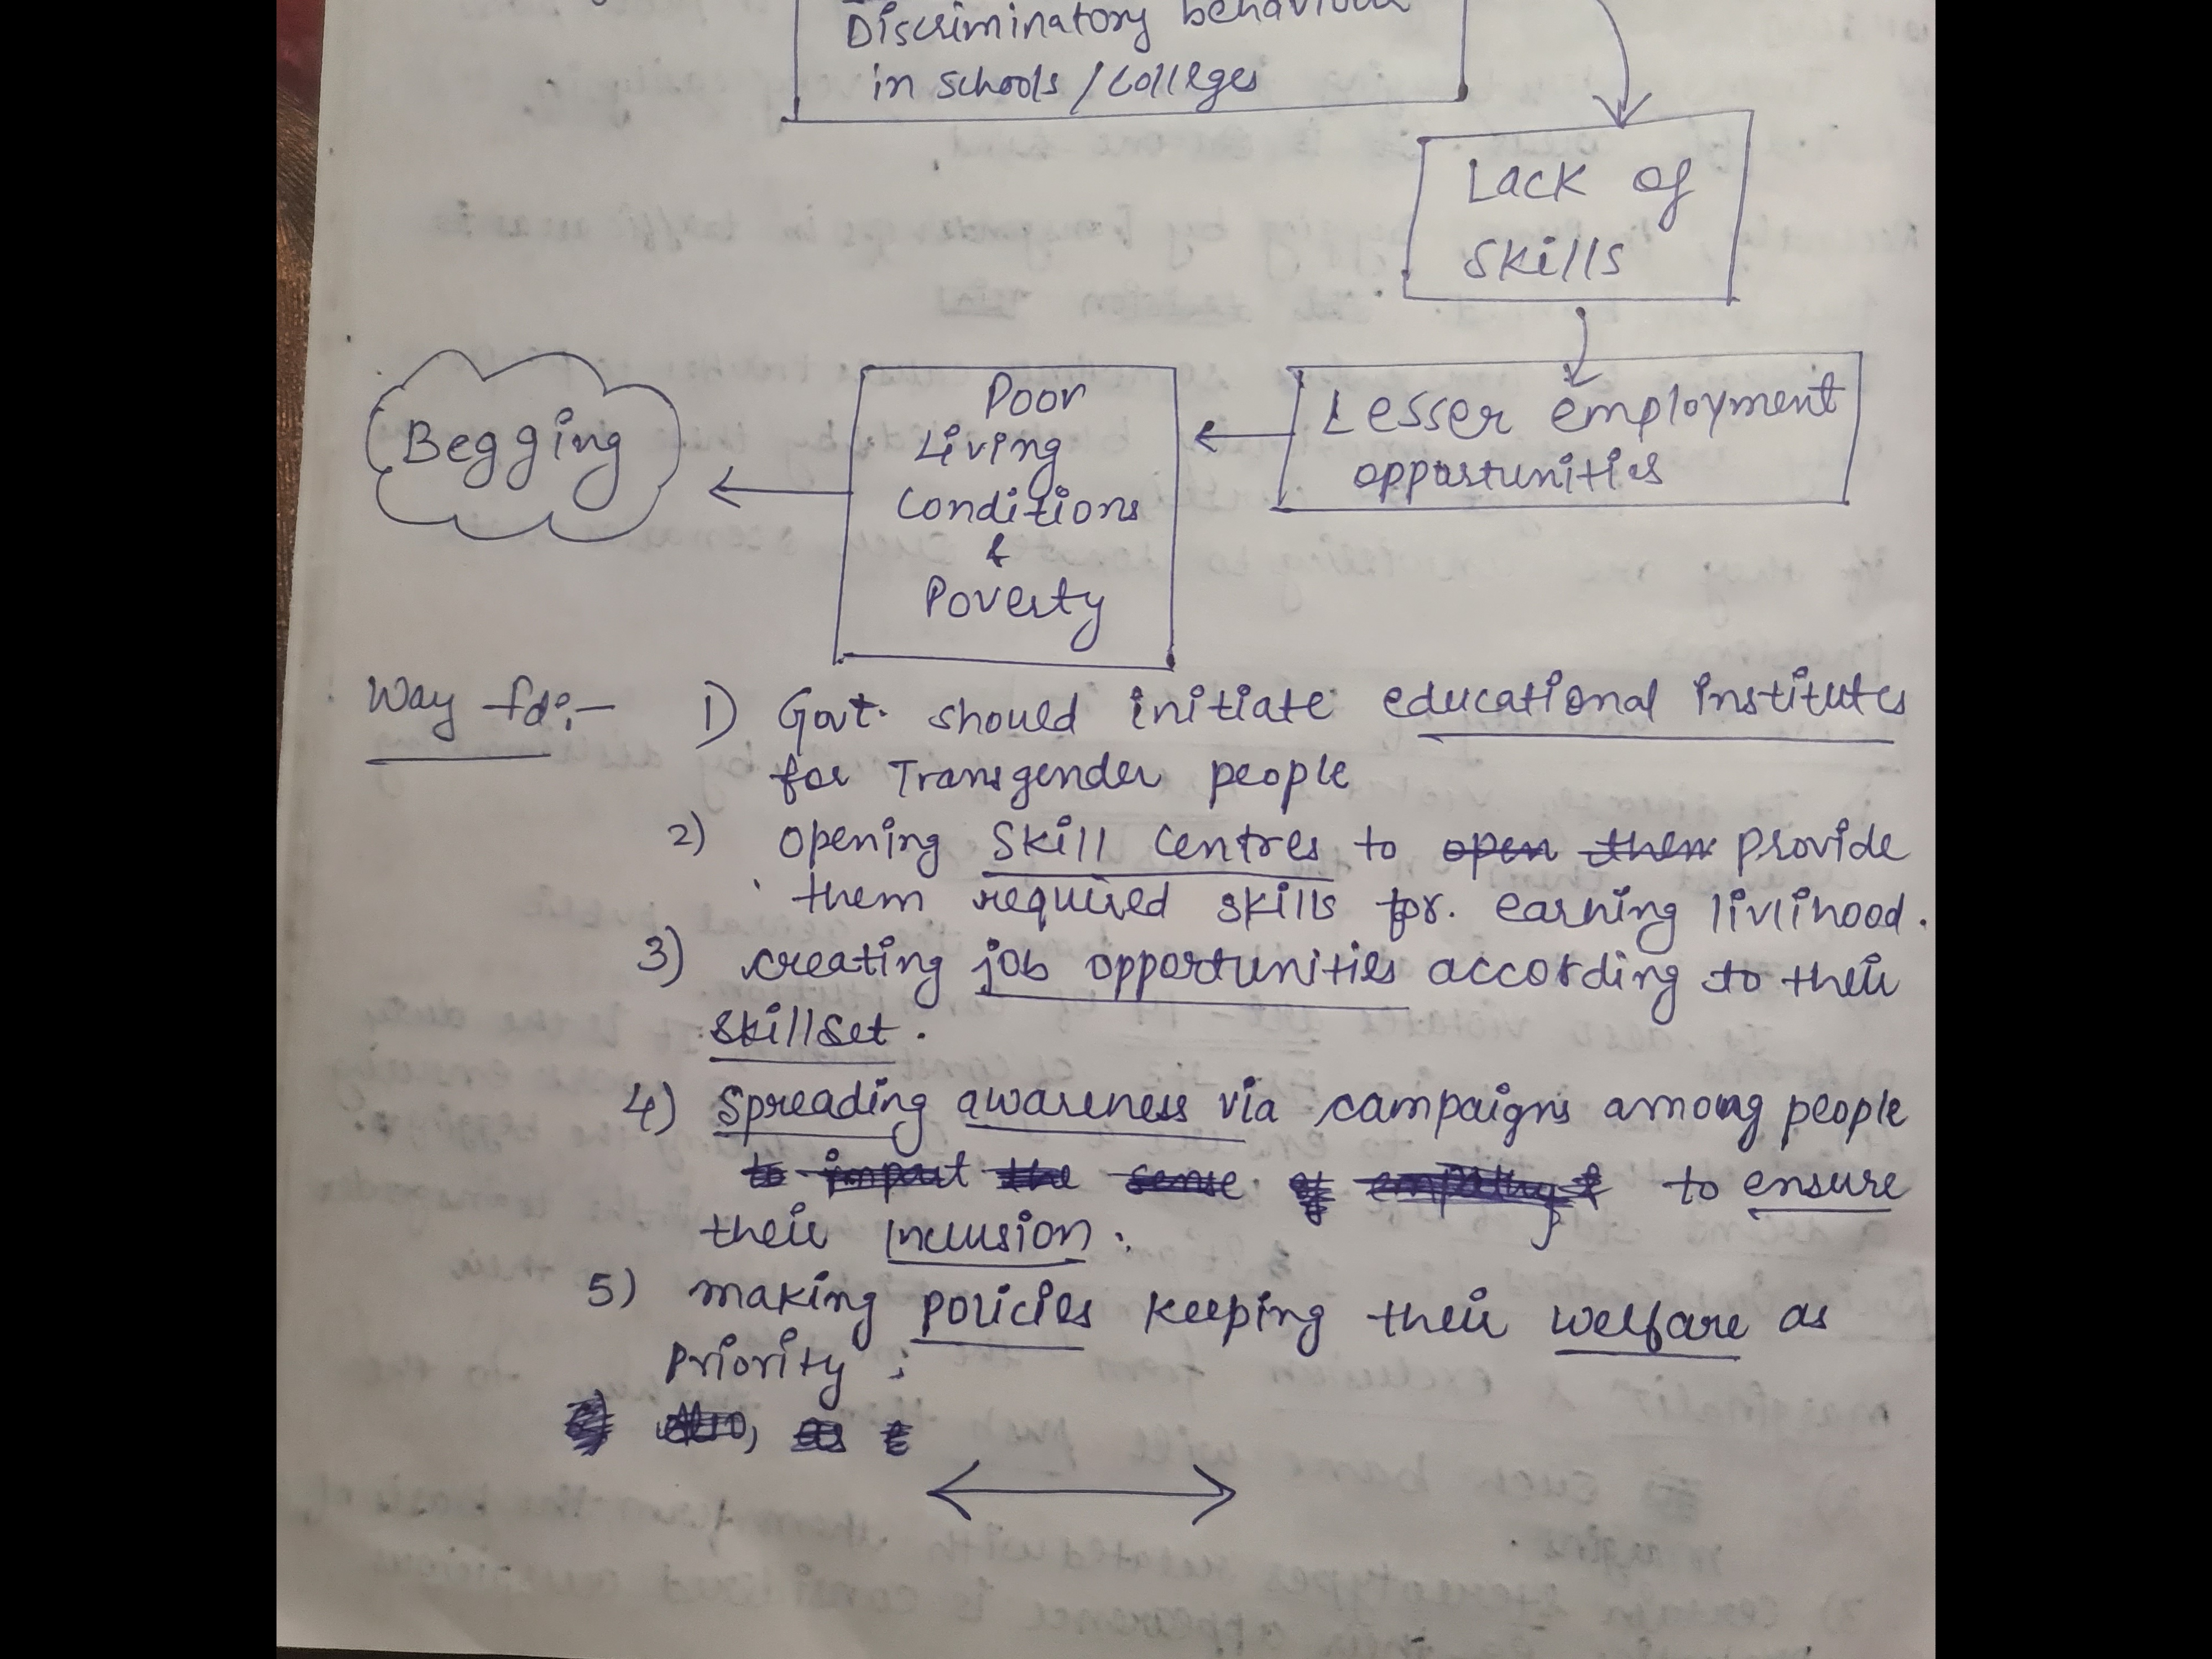 Discriminatory behaviour
in schools / colleges
Lack of
skills
Lesser employment
opportunities
Poor
Living
Conditions
&
Poverty
Begging
Way fd:- 1) Govt. should initiate educational institutes
for Transgender people
2) opening skill centres to open them provide
them required skills for. earning livlihood.
3) creating job opportunities according to their
skillset.
4) Spreading awareness via campaigns among people
to impart the sense of empathy & to ensure
their inclusion.
5) making policies keeping their welfare as
Priority.